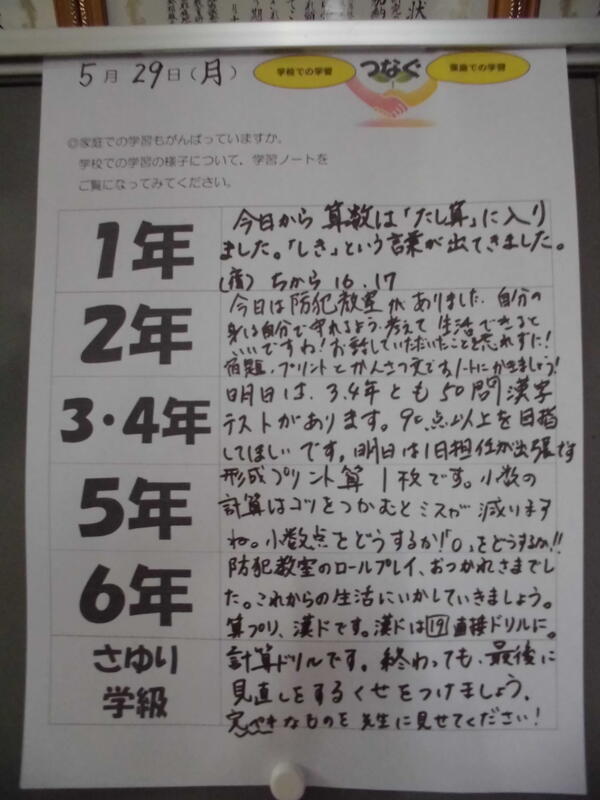 5月29日(月)
学校での学習
つなぐ
家庭での学習
◎家庭での学習もがんばっていますか。
学校での学習の様子について、学習ノートを
ご覧になってみてください。
1年
今日から算数は「たし算」に入り
ました。「しき」という言葉が出てきました。
(宿) ちから16.17
2年
今日は防犯教室がありました。自分の
身は自分で守れるよう、考えて生活できると
いいですね!お話していただいたことを忘れずに!
宿題、プリントとかんさつ文ですノートにかきましょう!
3・4年
明日は、3.4年とも50問漢字
テストがあります。90点以上を目指
してほしいです。明日は1日担任が出張です
5年
形成プリント算1枚です。小数の
計算はコツをつかむとミスが減ります
ね。小数点をどうするか!「0」をどうするか!!
6年
防犯教室のロールプレイ、おつかれさまでし
た。これからの生活にいかしていきましょう。
算プリ、漢ドです。漢ドは19直接ドリルに。
さゆり
学級
計算ドリルです。終わっても、最後に
見直しをするくせをつけましょう。
完ぺきなものを先生に見せてください!